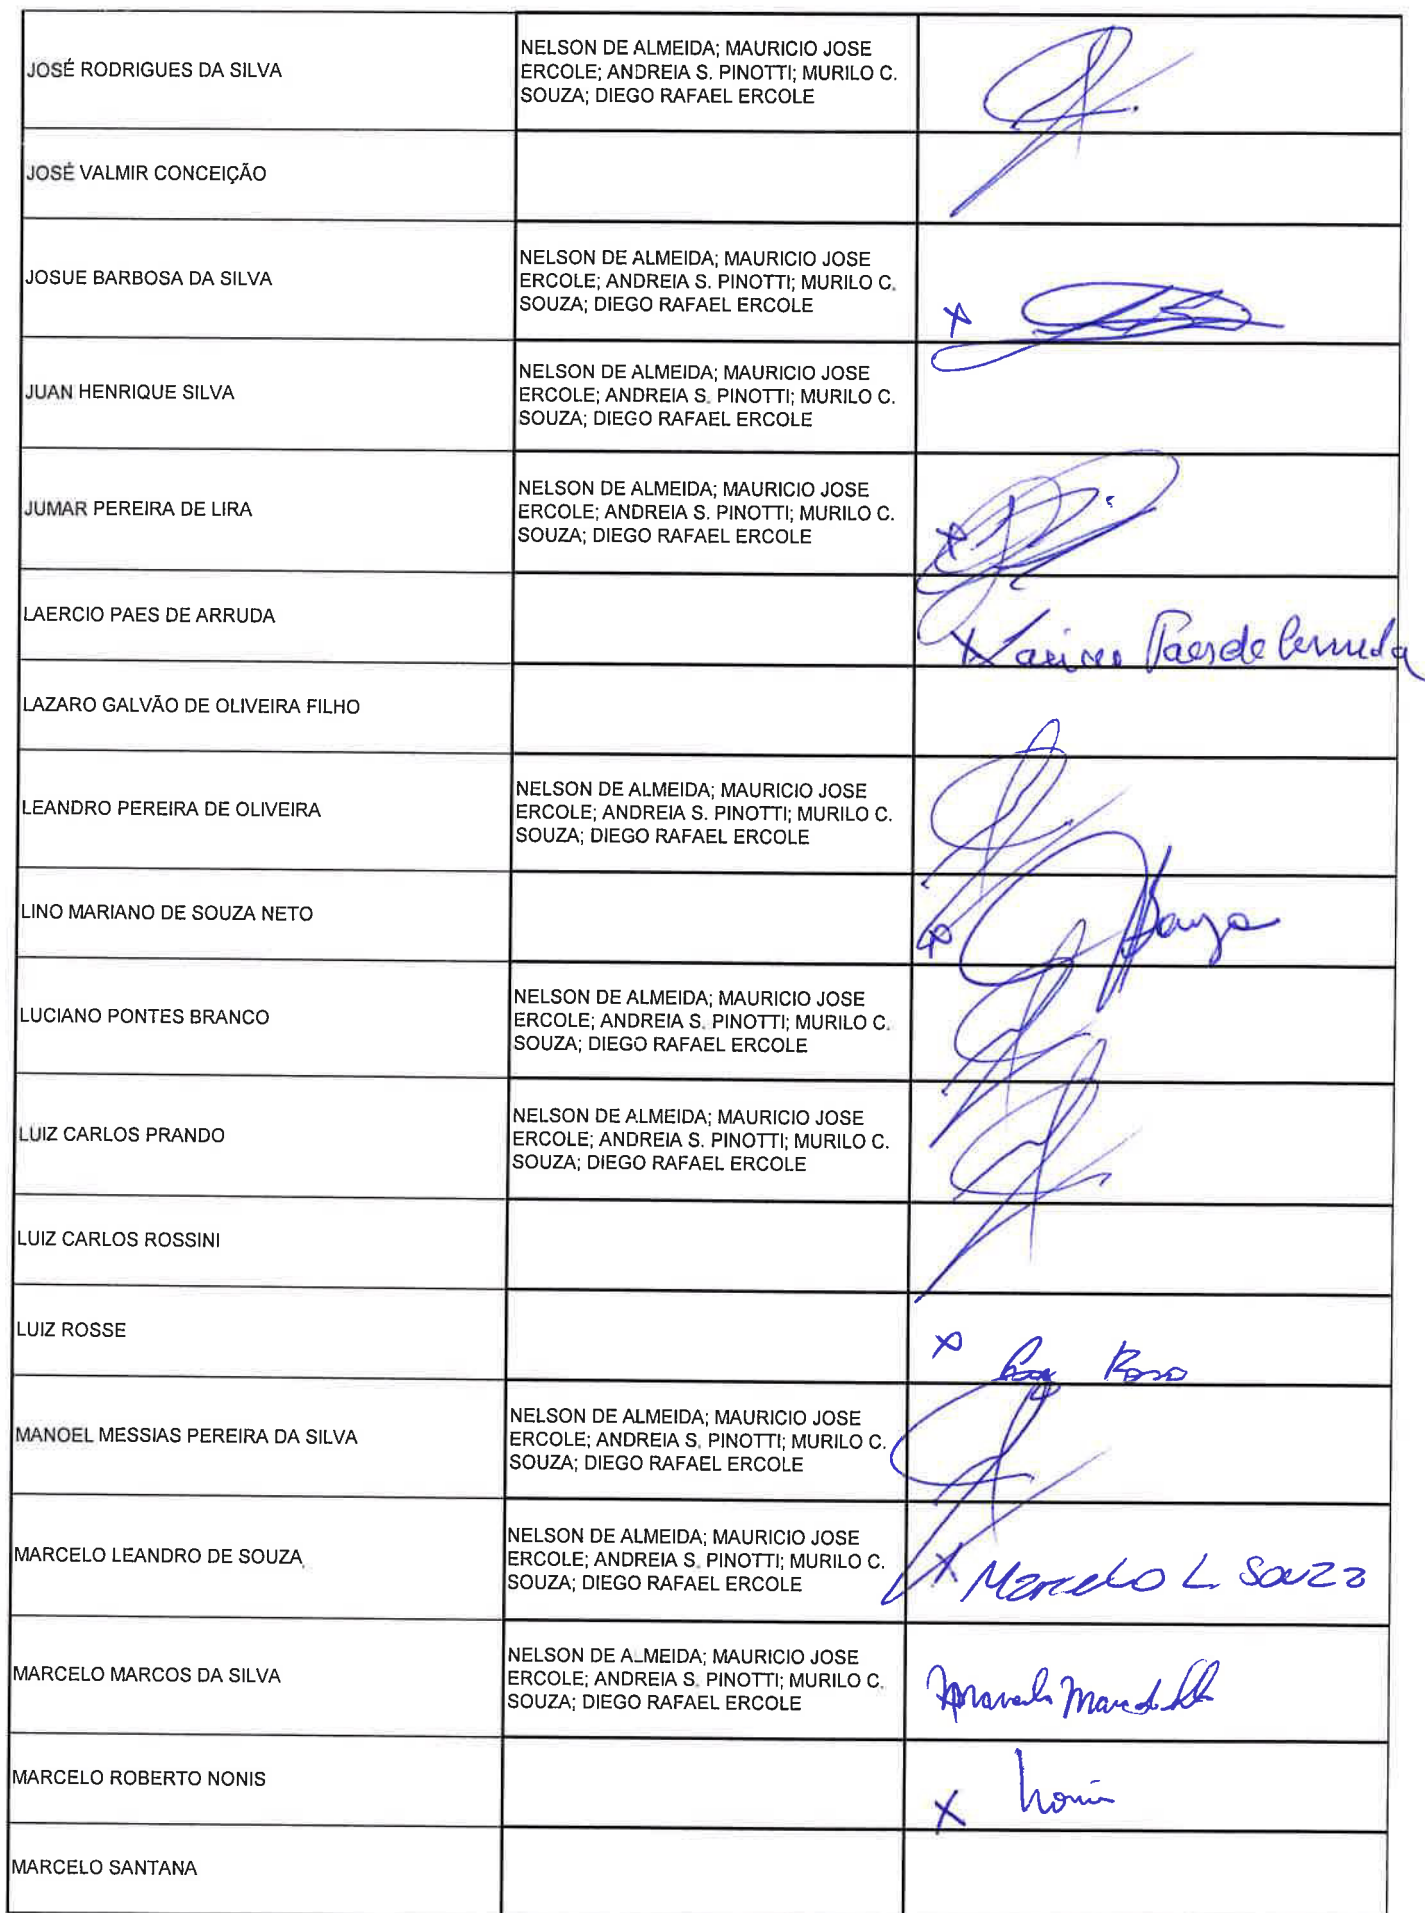 JOSÉ RODRIGUES DA SILVA
NELSON DE ALMEIDA; MAURICIO JOSE
ERCOLE; ANDREIA S. PINOTTI; MURILO C.
SOUZA; DIEGO RAFAEL ERCOLE
JOSÉ VALMIR CONCEIÇÃO
JOSUE BARBOSA DA SILVA
NELSON DE ALMEIDA; MAURICIO JOSE
ERCOLE; ANDREIA S. PINOTTI; MURILO C.
SOUZA; DIEGO RAFAEL ERCOLE
X
JUAN HENRIQUE SILVA
NELSON DE ALMEIDA; MAURICIO JOSE
ERCOLE; ANDREIA S. PINOTTI; MURILO C.
SOUZA; DIEGO RAFAEL ERCOLE
JUMAR PEREIRA DE LIRA
NELSON DE ALMEIDA; MAURICIO JOSE
ERCOLE; ANDREIA S. PINOTTI; MURILO C.
SOUZA; DIEGO RAFAEL ERCOLE
X
LAERCIO PAES DE ARRUDA
X Paes de
LAZARO GALVÃO DE OLIVEIRA FILHO
LEANDRO PEREIRA DE OLIVEIRA
NELSON DE ALMEIDA; MAURICIO JOSE
ERCOLE; ANDREIA S. PINOTTI; MURILO C.
SOUZA; DIEGO RAFAEL ERCOLE
LINO MARIANO DE SOUZA NETO
X
LUCIANO PONTES BRANCO
NELSON DE ALMEIDA; MAURICIO JOSE
ERCOLE; ANDREIA S. PINOTTI; MURILO C.
SOUZA; DIEGO RAFAEL ERCOLE
LUIZ CARLOS PRANDO
NELSON DE ALMEIDA; MAURICIO JOSE
ERCOLE; ANDREIA S. PINOTTI; MURILO C.
SOUZA; DIEGO RAFAEL ERCOLE
LUIZ CARLOS ROSSINI
LUIZ ROSSE
X
MANOEL MESSIAS PEREIRA DA SILVA
NELSON DE ALMEIDA; MAURICIO JOSE
ERCOLE; ANDREIA S. PINOTTI; MURILO C.
SOUZA; DIEGO RAFAEL ERCOLE
MARCELO LEANDRO DE SOUZA
NELSON DE ALMEIDA; MAURICIO JOSE
ERCOLE; ANDREIA S. PINOTTI; MURILO C.
SOUZA; DIEGO RAFAEL ERCOLE
X Marcelo L Souza
MARCELO MARCOS DA SILVA
NELSON DE ALMEIDA; MAURICIO JOSE
ERCOLE; ANDREIA S. PINOTTI; MURILO C.
SOUZA; DIEGO RAFAEL ERCOLE
MARCELO ROBERTO NONIS
X Nonis
MARCELO SANTANA